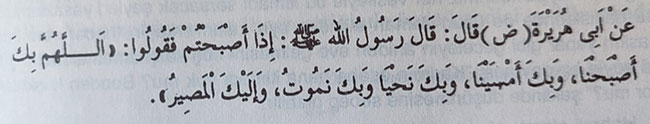 عَنْ اَبِى هُرَيْرَةَ (ض) قَالَ: قَالَ رَسُولُ اللهِ ﷺ: إِذَا أَصْبَحْتُمْ فَقُولُوا: «اَللَّهُمَّ بِكَ
أَصْبَحْنَا، وَبِكَ أَمْسَيْنَا، وَبِكَ نَحْيَا وَبِكَ نَمُوتُ، وَإِلَيْكَ الْمَصِيرُ».